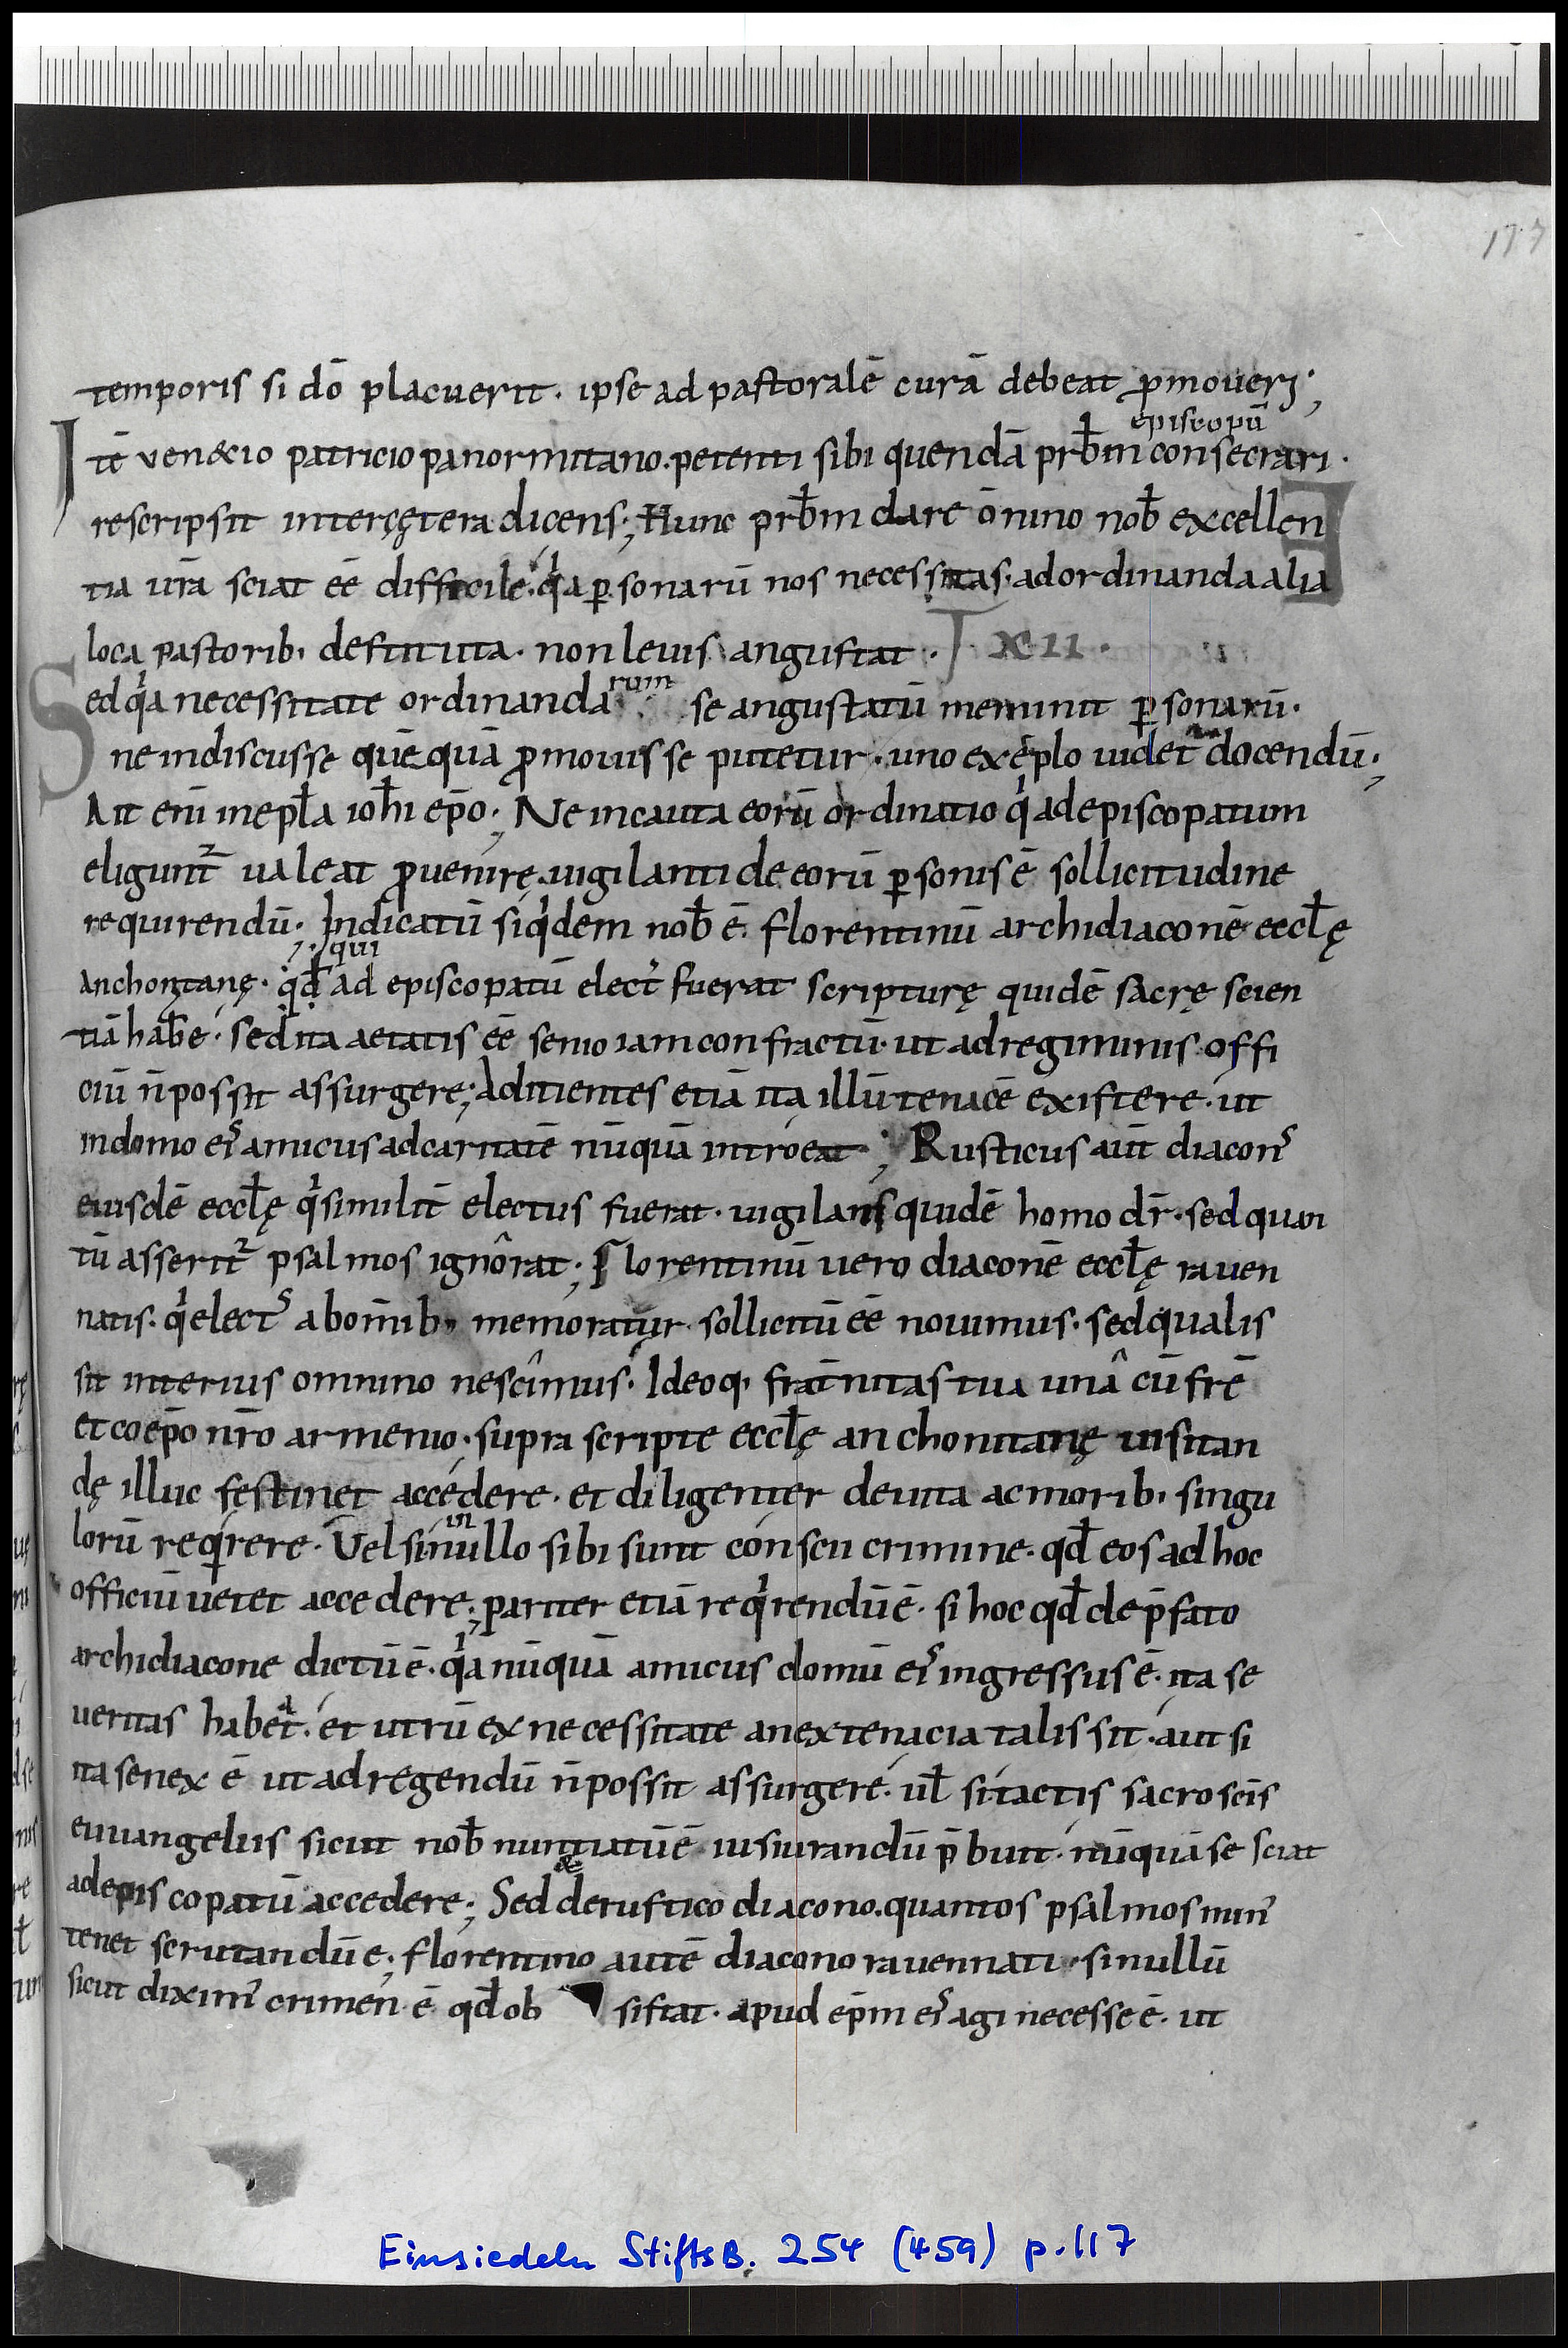 117
temporis si dō placuerit · ipse ad pastoralē curā debeat ꝓmoueri;
episcopū
Itē uenancio patricio panormitano · petenti sibi quendā prƀm consecrari ·
rescripsit inter cętera dicens; Hunc prƀm dare ōnino noƀ excellen
tia ur̄a sciat eē difficile · qͥa ꝑsonarū nos necessitas · ad ordinanda alia
loca pastorib; destituta · non leuis angustat · XII ·
Sed qͥa necessitate ordinandarum se angustatū meminit ꝑsonarū ·
ne indiscusse quēquā ꝓmouisse putetur · uno exēplo uidet᷑ docendū;
Ait enī in epƚa iohī ep̄o; Ne incauta eorū ordinatio qͥ ad episcopatum
eligunt᷑ ualeat ꝓuenire · uigilanti de eorū ꝑsonis ē sollicitudine
requirendū · Indicatū siqͥdem noƀ ē · florentinū archidiaconē eccƚę
qui
Anchonitanę · qđ ad episcopatū elect᷒ fuerat scripturę quidē sacrę scien
tiā habē · sed ita aetatis eē senio iam confractū · ut ad regiminis offi
ciū n̄ possit assurgere; Adicientes etiā ita illū tenacē existere · ut
in domo ei᷒ amicus ad caritatē nūquā introeat; Rusticus aut̄ diacon᷒
eiusdē eccƚę qͥ similit̄ electus fuerat · uigilans quidē homo dr̄ · sed quan
tū asserit᷑ psalmos ignorat; Florentinū uero diaconē eccƚę rauen
natis · qͥ elect᷒ ab om̄ib; memoratur · sollicitū eē nouimus · sed qualis
sit interius omnino nescimus · Ideoq; frat̄nitas tua unâ cū fr̄e
et coep̄o nr̄o armenio · supra scripte eccƚę anchonitanę uisitan
dę illuc festinet accedere · et diligenter de uita ac morib; singu
in
lorū reqͥrere · Vel si nullo sibi sunt conscii crimine · qđ eos ad hoc
officiū uetet accedere; pariter etiā reqͥrendū ē · si hoc qđ de p̄fato
archidiacone dictū ē · qͥa nūquā amicus domū ei᷒ ingressus ē · ita se
ueritas habet · et utrū ex necessitate an ex tenacia talis sit · aut si
ita senex ē ut ad regendū n̄ possit assurgere · uƚ si tactis sacroscīs
euuangeliis sicut noƀ nuntiatū ē iusiurandū p̄buit · nūquā se sciat
&
ad episcopatū accedere; Sed de rustico diacono · quantos psalmos min᷒
tenet scrutandū ē; florentino autē diacono rauennati · si nullū
sicut dixim᷒ crimen ē qđ ob sistat · apud ep̄m ei᷒ agi necesse ē · ut
Einsiedeln StiftsB. 254 (459) p. 117